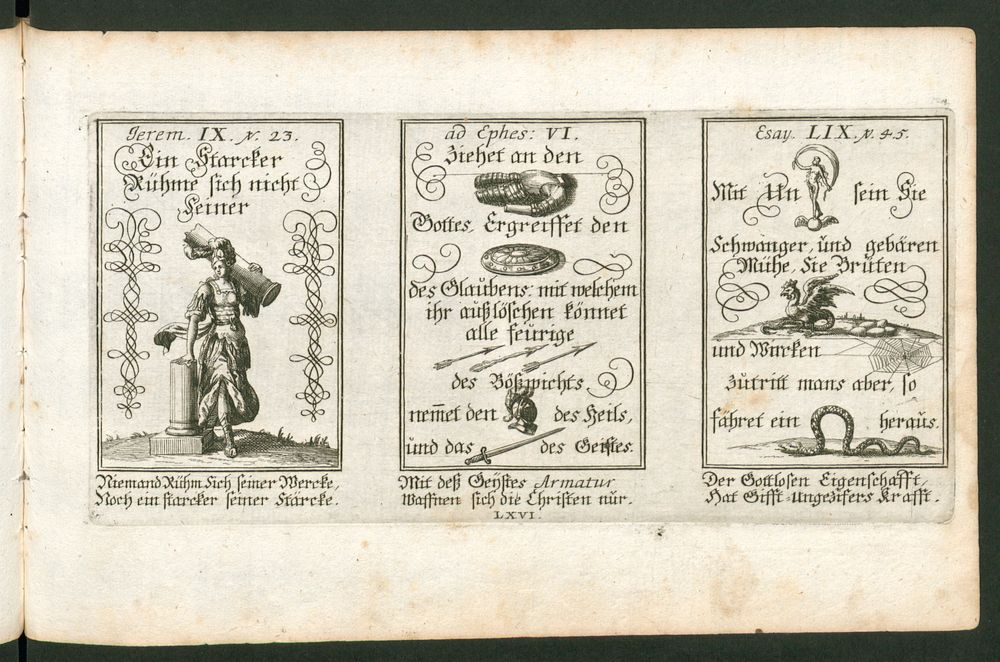 Jerem. IX. v. 23.
Ein Starcker
Rühme sich nicht
seiner
Niemand Rühm Sich seiner Wercke,
Noch ein starcker seiner Stärcke.
ad Ephes: VI.
Ziehet an den
Gottes, Ergreiffet den
des Glaubens: mit welchem
ihr außlöschen könnet
alle feurige
des Bößwichts,
nem̄et den des Heils,
und das des Geistes.
Mit deß Geystes Armatur
Waffnen sich die Christen nur.
LXVI.
Esay. LIX. v. 4 5.
Mit Un sein Sie
Schwanger, und gebären
Mühe, Sie Brüten
und Wurken
Zutritt mans aber, so
fähret ein heraus.
Der Gottlosen Eigenschafft,
Hat Gifft Ungezifers Krafft.